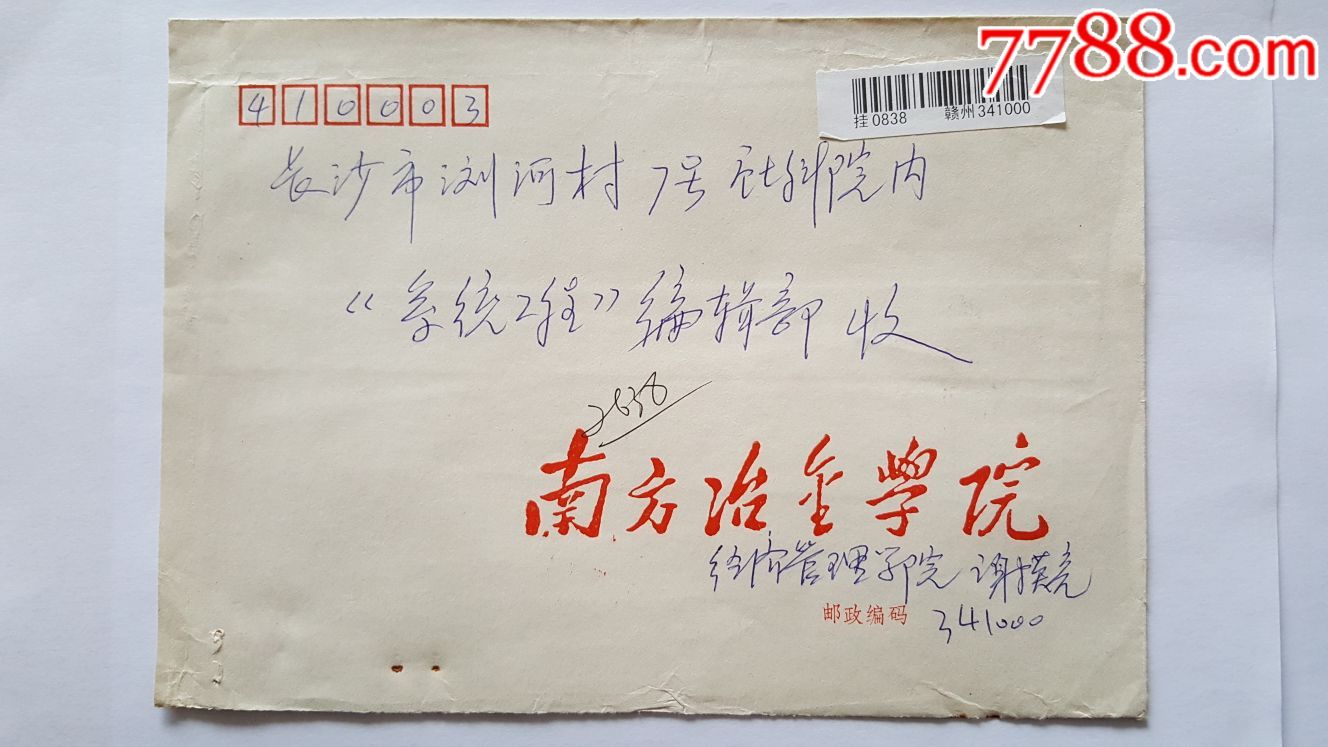 7788.com
挂0838 赣州341000
410003
长沙市浏河村7号社科院内
《系统工程》编辑部 收
2638
南方冶金學院
经济管理学院 谢
邮政编码 341000